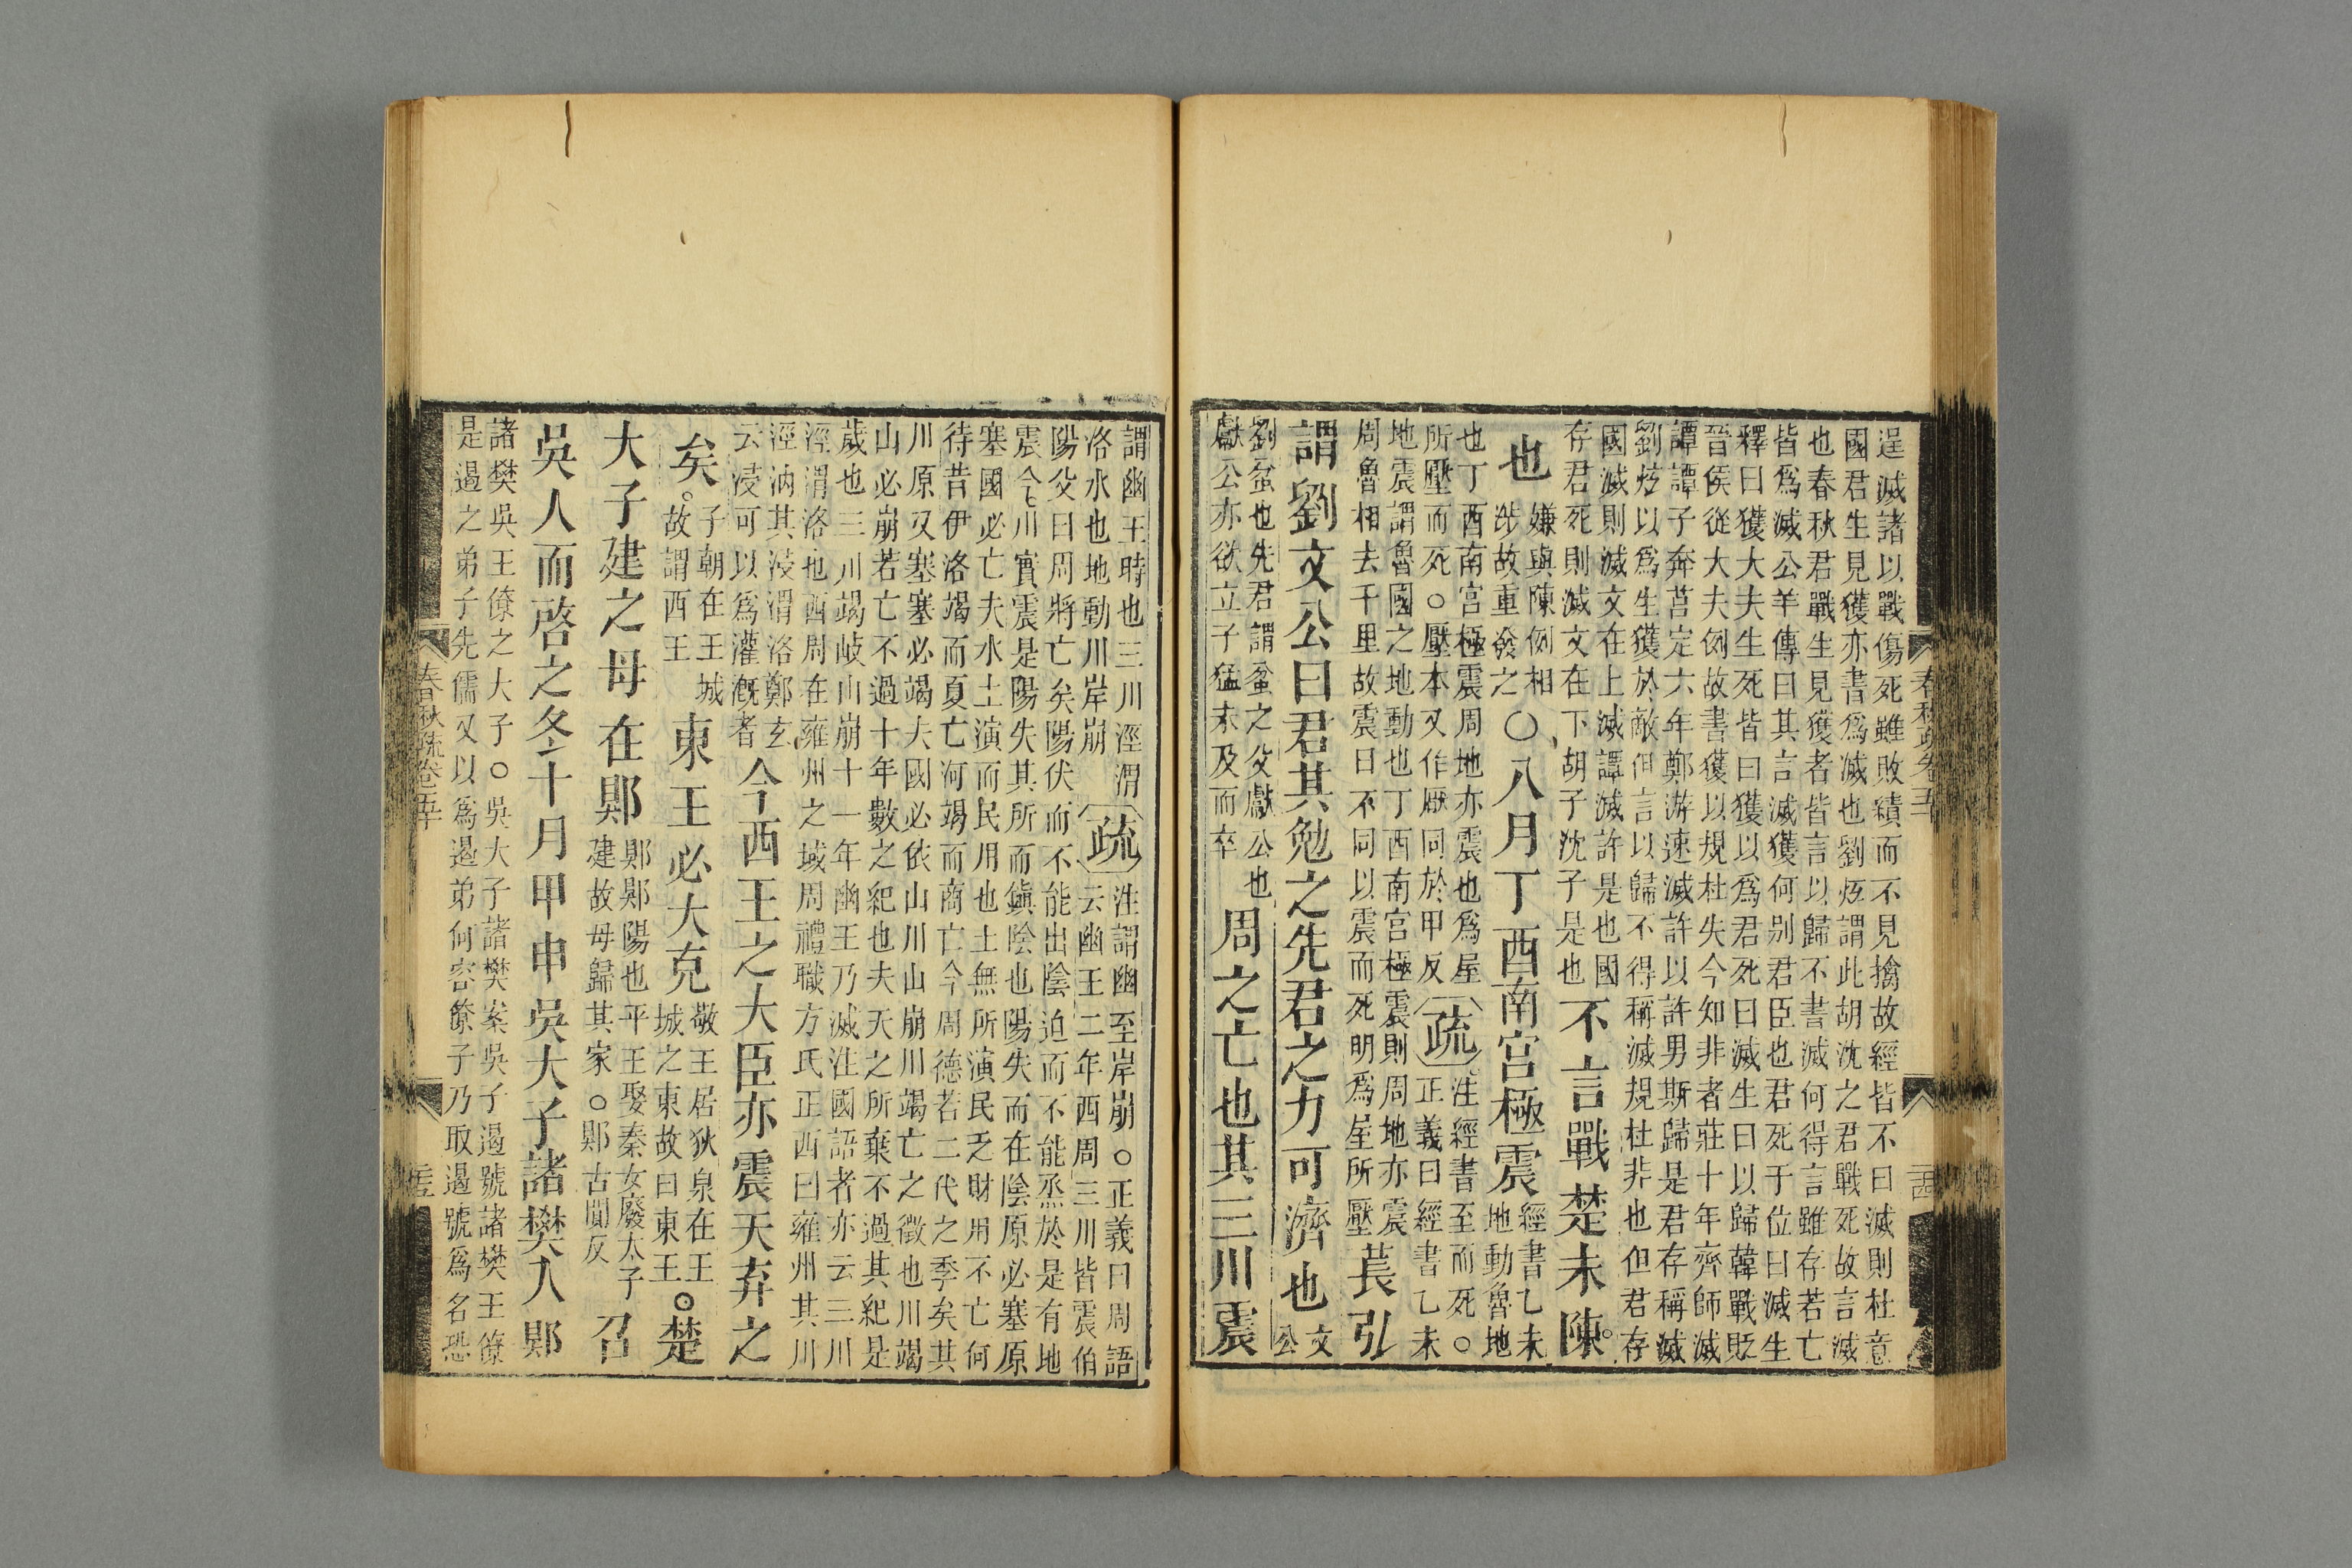 逞滅諸以戰傷死雖敗績而不見擒故經皆不曰滅則杜意
國君生見獲亦書爲滅也劉炫謂此胡沈之君戰死故言滅
也春秋君戰生見獲者皆言以歸不書滅何得言雖存若亡
皆爲滅公羊傳曰其言滅獲何别君臣也君死于位曰滅生
釋曰獲大夫生死皆曰獲以爲君死曰滅生曰以歸韓戰貶
晉侯從大夫例故書獲以規杜失今知非者莊十年齊師滅
譚譚子奔莒定六年鄭游速滅許以許男斯歸是君存稱滅
劉炫以爲生獲於敵但言以歸不得稱滅規杜非也但君存
國滅則滅文在上滅譚滅許是也國
存君死則滅文在下胡子沈子是也不言戰楚未陳
也嫌與陳例相
涉故重發之〇八月丁酉南宮極震經書乙未
地動魯地
也丁酉南宮極震周地亦震也爲屋
所壓而死○壓本又作厭同於甲反疏注經書至而死○
正義曰經書乙未
地震謂魯國之地動也丁酉南宮極震則周地亦震
周魯相去千里故震日不同以震而死明爲屋所壓萇弘
謂劉文公曰君其勉之先君之力可濟也文
公
劉蚠也先君謂蚠之父獻公也
獻公亦欲立子猛未及而卒周之亡也其三川震
謂幽王時也三川涇渭
洛水也地動川岸崩疏注謂幽至岸崩○正義曰周語
云幽王二年西周三川皆震伯
陽父曰周將亡矣陽伏而不能出陰迫而不能烝於是有地
震今三川實震是陽失其所而鎮陰也陽失而在陰原必塞原
塞國必亡夫水土演而民用也土無所演民乏財用不亡何
待昔伊洛竭而夏亡河竭而商亡今周德若二代之季矣其
川原又塞塞必竭夫國必依山川山崩川竭亡之徵也川竭
山必崩若亡不過十年數之紀也夫天之所棄不過其紀是
歲也三川竭岐山崩十一年幽王乃滅注國語者亦云三川
涇渭洛也西周在雍州之域周禮職方氏正西曰雍州其川
涇汭其浸渭洛鄭玄
云浸可以爲灌漑者今西王之大臣亦震天弃之
矣子朝在王城
故謂西王東王必大克敬王居狄泉在王
城之東故曰東王◎楚
大子建之母在郹郹郹陽也平王娶秦女廢太子
建故母歸其家○郹古闃反召
吳人而啓之冬十月甲申吳大子諸樊入郹
諸樊吳王僚之大子○吳大子諸樊案吳子遏號諸樊王僚
是遏之弟子先儒又以爲遏弟何容僚子乃取遏號爲名恐
春秋疏卷五十